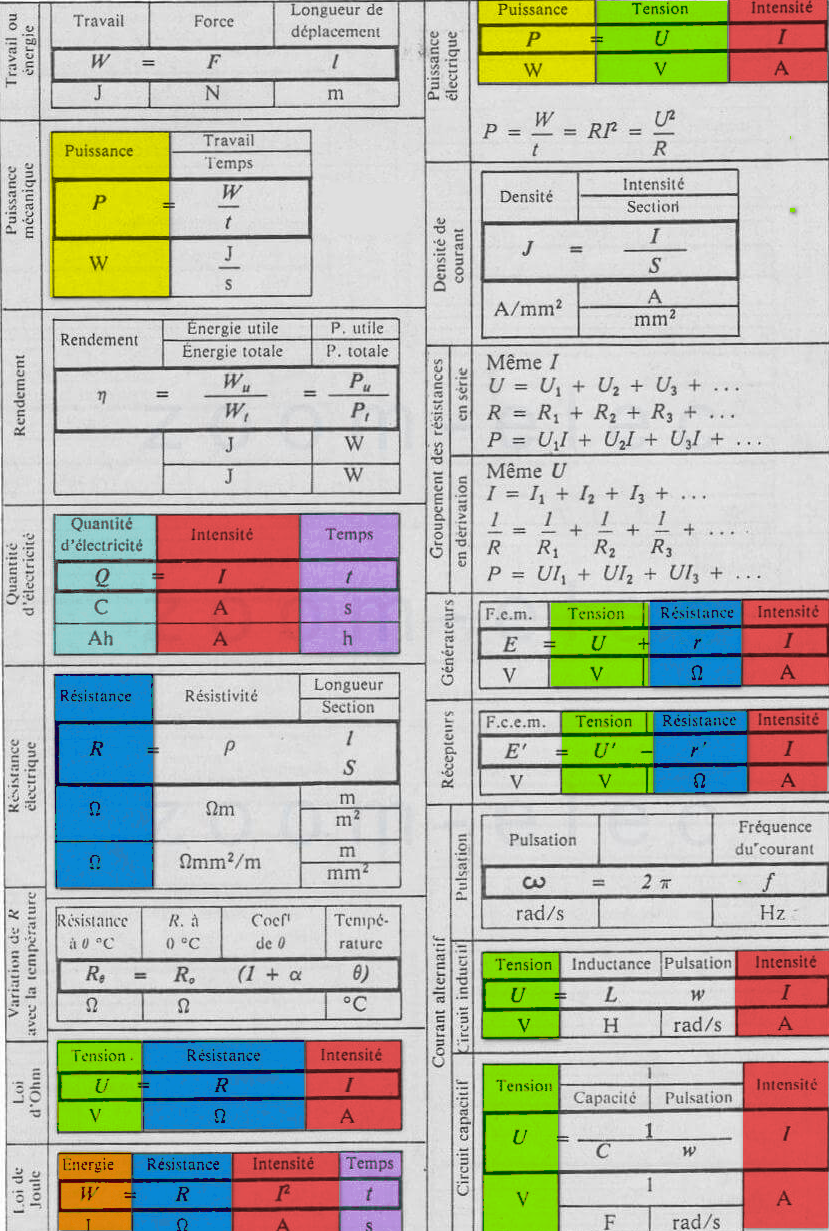 Travail ou énergie
Travail Force Longueur de déplacement
W = F l
J N m
Puissance mécanique
Puissance Travail
Temps
P = W
t
W J
s
Rendement
Rendement Énergie utile P. utile
Énergie totale P. totale
η = W_u = P_u
W_t P_t
J W
J W
Quantité d'électricité
Quantité d'électricité Intensité Temps
Q = I t
C A s
Ah A h
Résistance électrique
Résistance Résistivité Longueur
Section
R = ρ l
S
Ω Ωm m
m²
Ω Ωmm²/m m
mm²
Variation de R avec la température
Résistance R. à Coefᵗ Tempé-
à θ °C 0 °C de θ rature
R_θ = R_o (1 + α θ)
Ω Ω °C
Loi d'Ohm
Tension Résistance Intensité
U = R I
V Ω A
Loi de Joule
Energie Résistance Intensité Temps
W = R I² t
J Ω A s
Puissance électrique
Puissance Tension Intensité
P = U I
W V A
P = W/t = RI² = U²/R
Densité de courant
Densité Intensité
Section
J = I
S
A/mm² A
mm²
Groupement des résistances
en série
Même I
U = U₁ + U₂ + U₃ + ...
R = R₁ + R₂ + R₃ + ...
P = U₁I + U₂I + U₃I + ...
en dérivation
Même U
I = I₁ + I₂ + I₃ + ...
1/R = 1/R₁ + 1/R₂ + 1/R₃ + ...
P = UI₁ + UI₂ + UI₃ + ...
Générateurs
F.e.m. Tension Résistance Intensité
E = U + r I
V V Ω A
Récepteurs
F.c.e.m. Tension Résistance Intensité
E' = U' − r' I
V V Ω A
Courant alternatif
Pulsation
Pulsation Fréquence du courant
ω = 2 π f
rad/s Hz
Circuit inductif
Tension Inductance Pulsation Intensité
U = L w I
V H rad/s A
Circuit capacitif
Tension 1 Intensité
Capacité Pulsation
U = 1 I
C w
V 1 A
F rad/s
zoom-elec
zoom-elec
zoom-elec